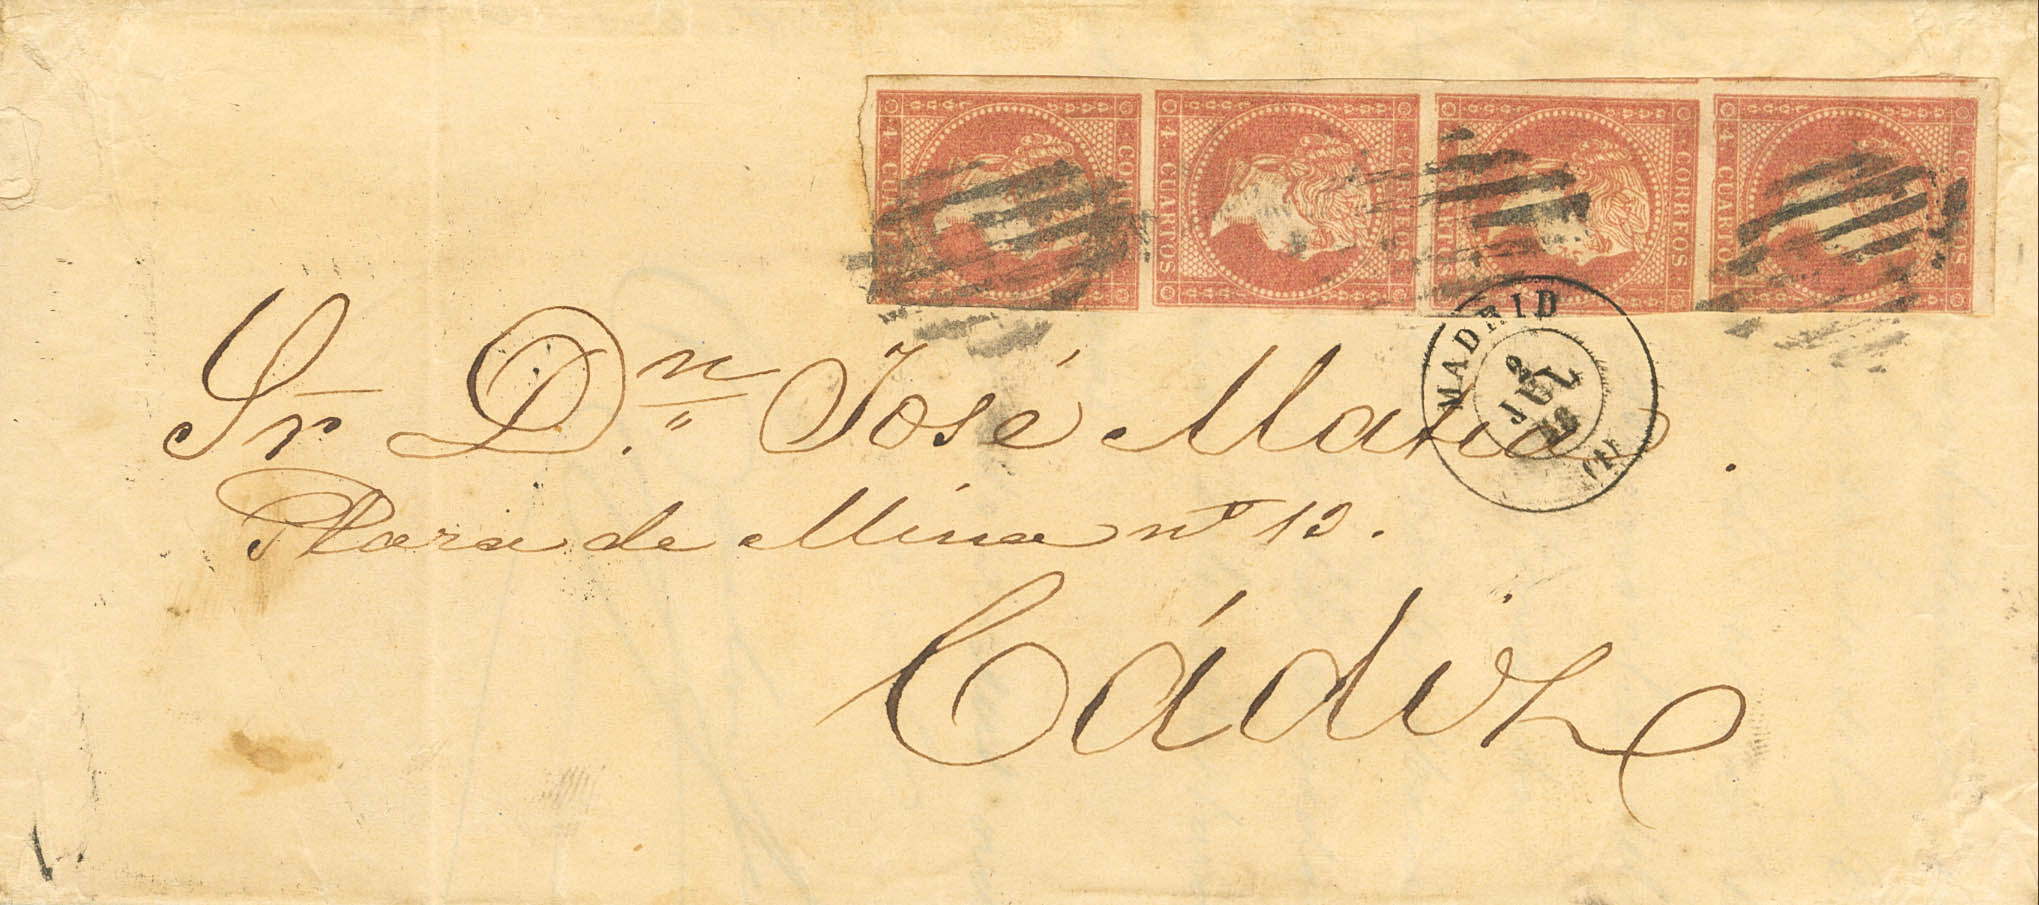 4 CUARTOS CORREOS
4 CUARTOS CORREOS
4 CUARTOS CORREOS
4 CUARTOS CORREOS
MADRID
JUL
(1)
Sr. Dn. José Matia.
Plaza de Mina no 12.
Cádiz